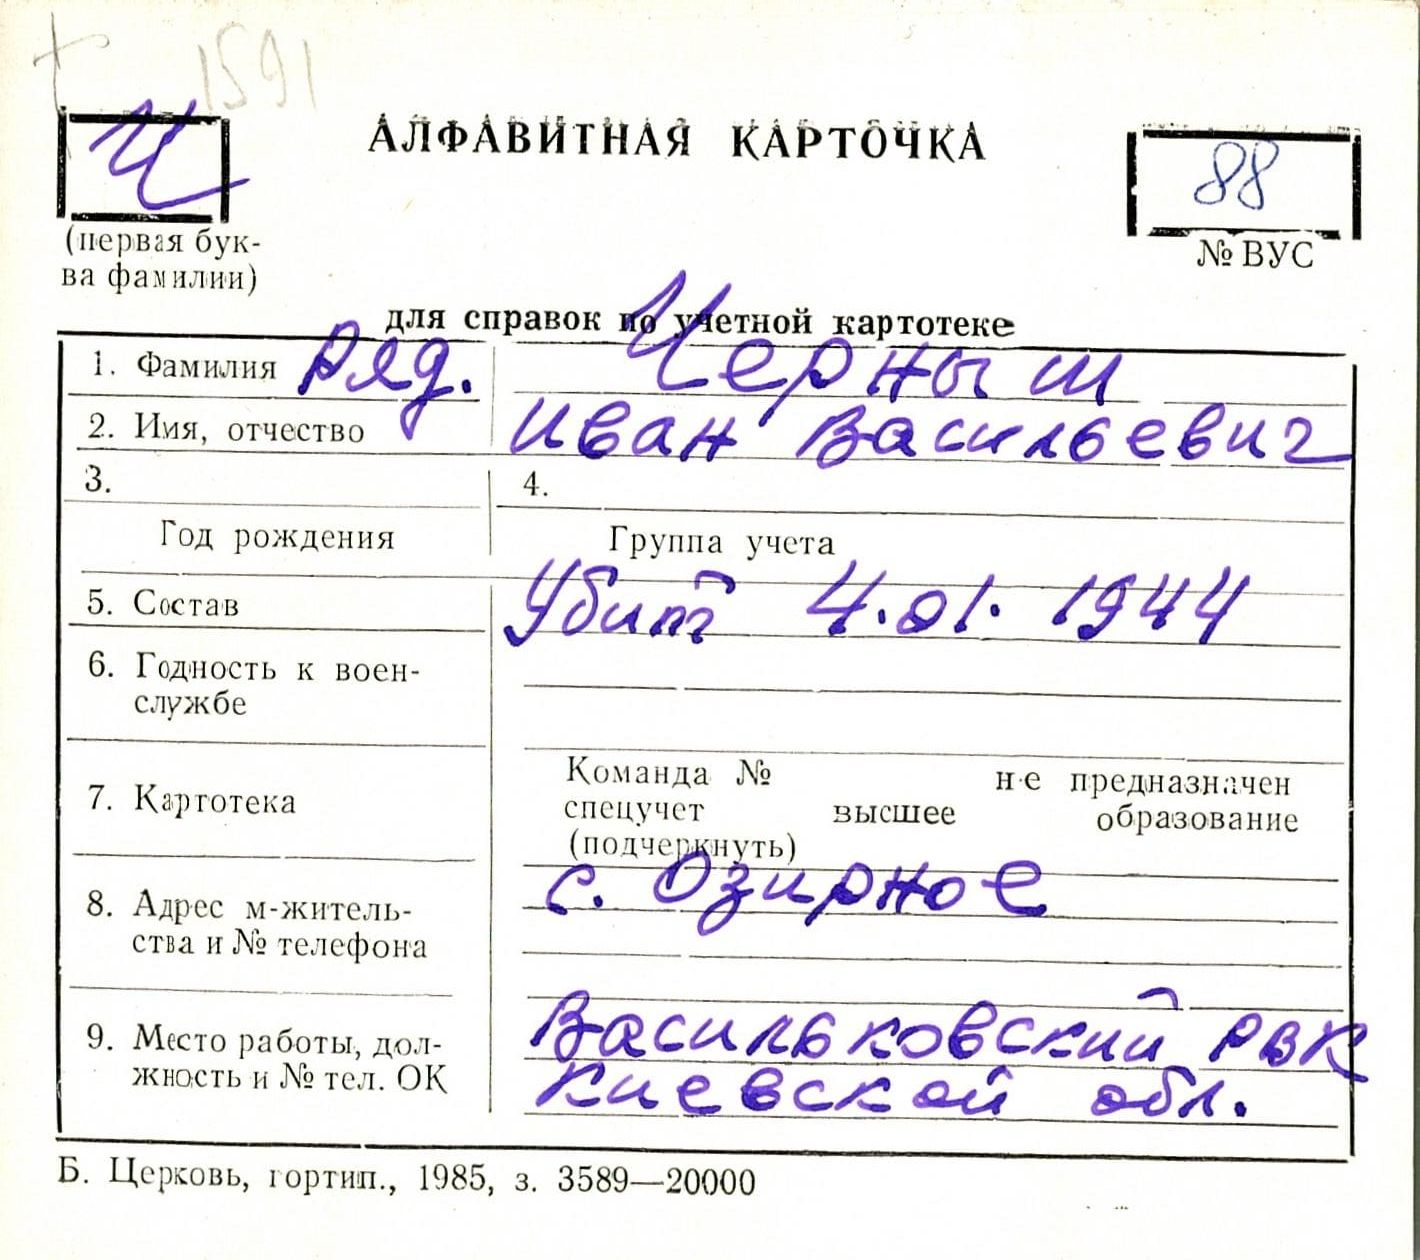 1591
Ч
АЛФАВИТНАЯ КАРТОЧКА
88
(первая бук-
ва фамилии)
№ ВУС
для справок по учетной картотеке
1. Фамилия Ряд. Черныш
2. Имя, отчество Иван Васильевич
3. 4.
Год рождения Группа учета
5. Состав Убит 4.01.1944
6. Годность к воен-
службе
7. Картотека
Команда № не предназначен
спецучет высшее образование
(подчеркнуть)
8. Адрес м-житель-
ства и № телефона
с. Озирное
9. Место работы, дол-
жность и № тел. ОК
Васильковский РВК
Киевской обл.
Б. Церковь, гортип., 1985, з. 3589—20000